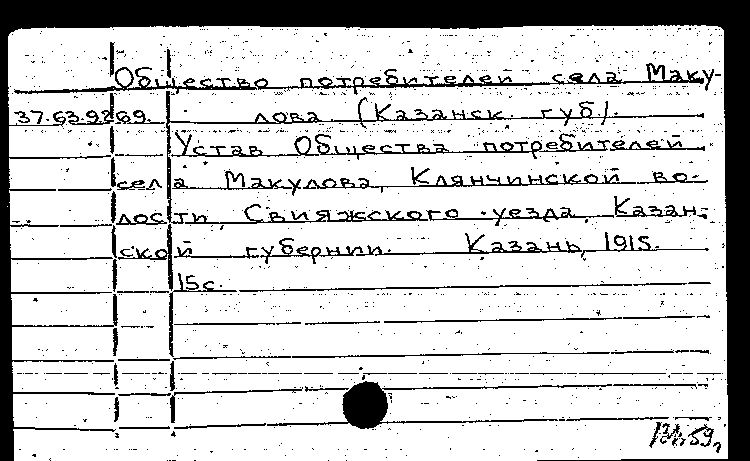 Общество потребителей села Маку-
37.63.9269. лова (Казанск. губ).
Устав Общества потребителей
села Макулова, Клянчинской во-
лости, Свияжского уезда, Казан-
ской губернии. Казань, 1915.
15с.